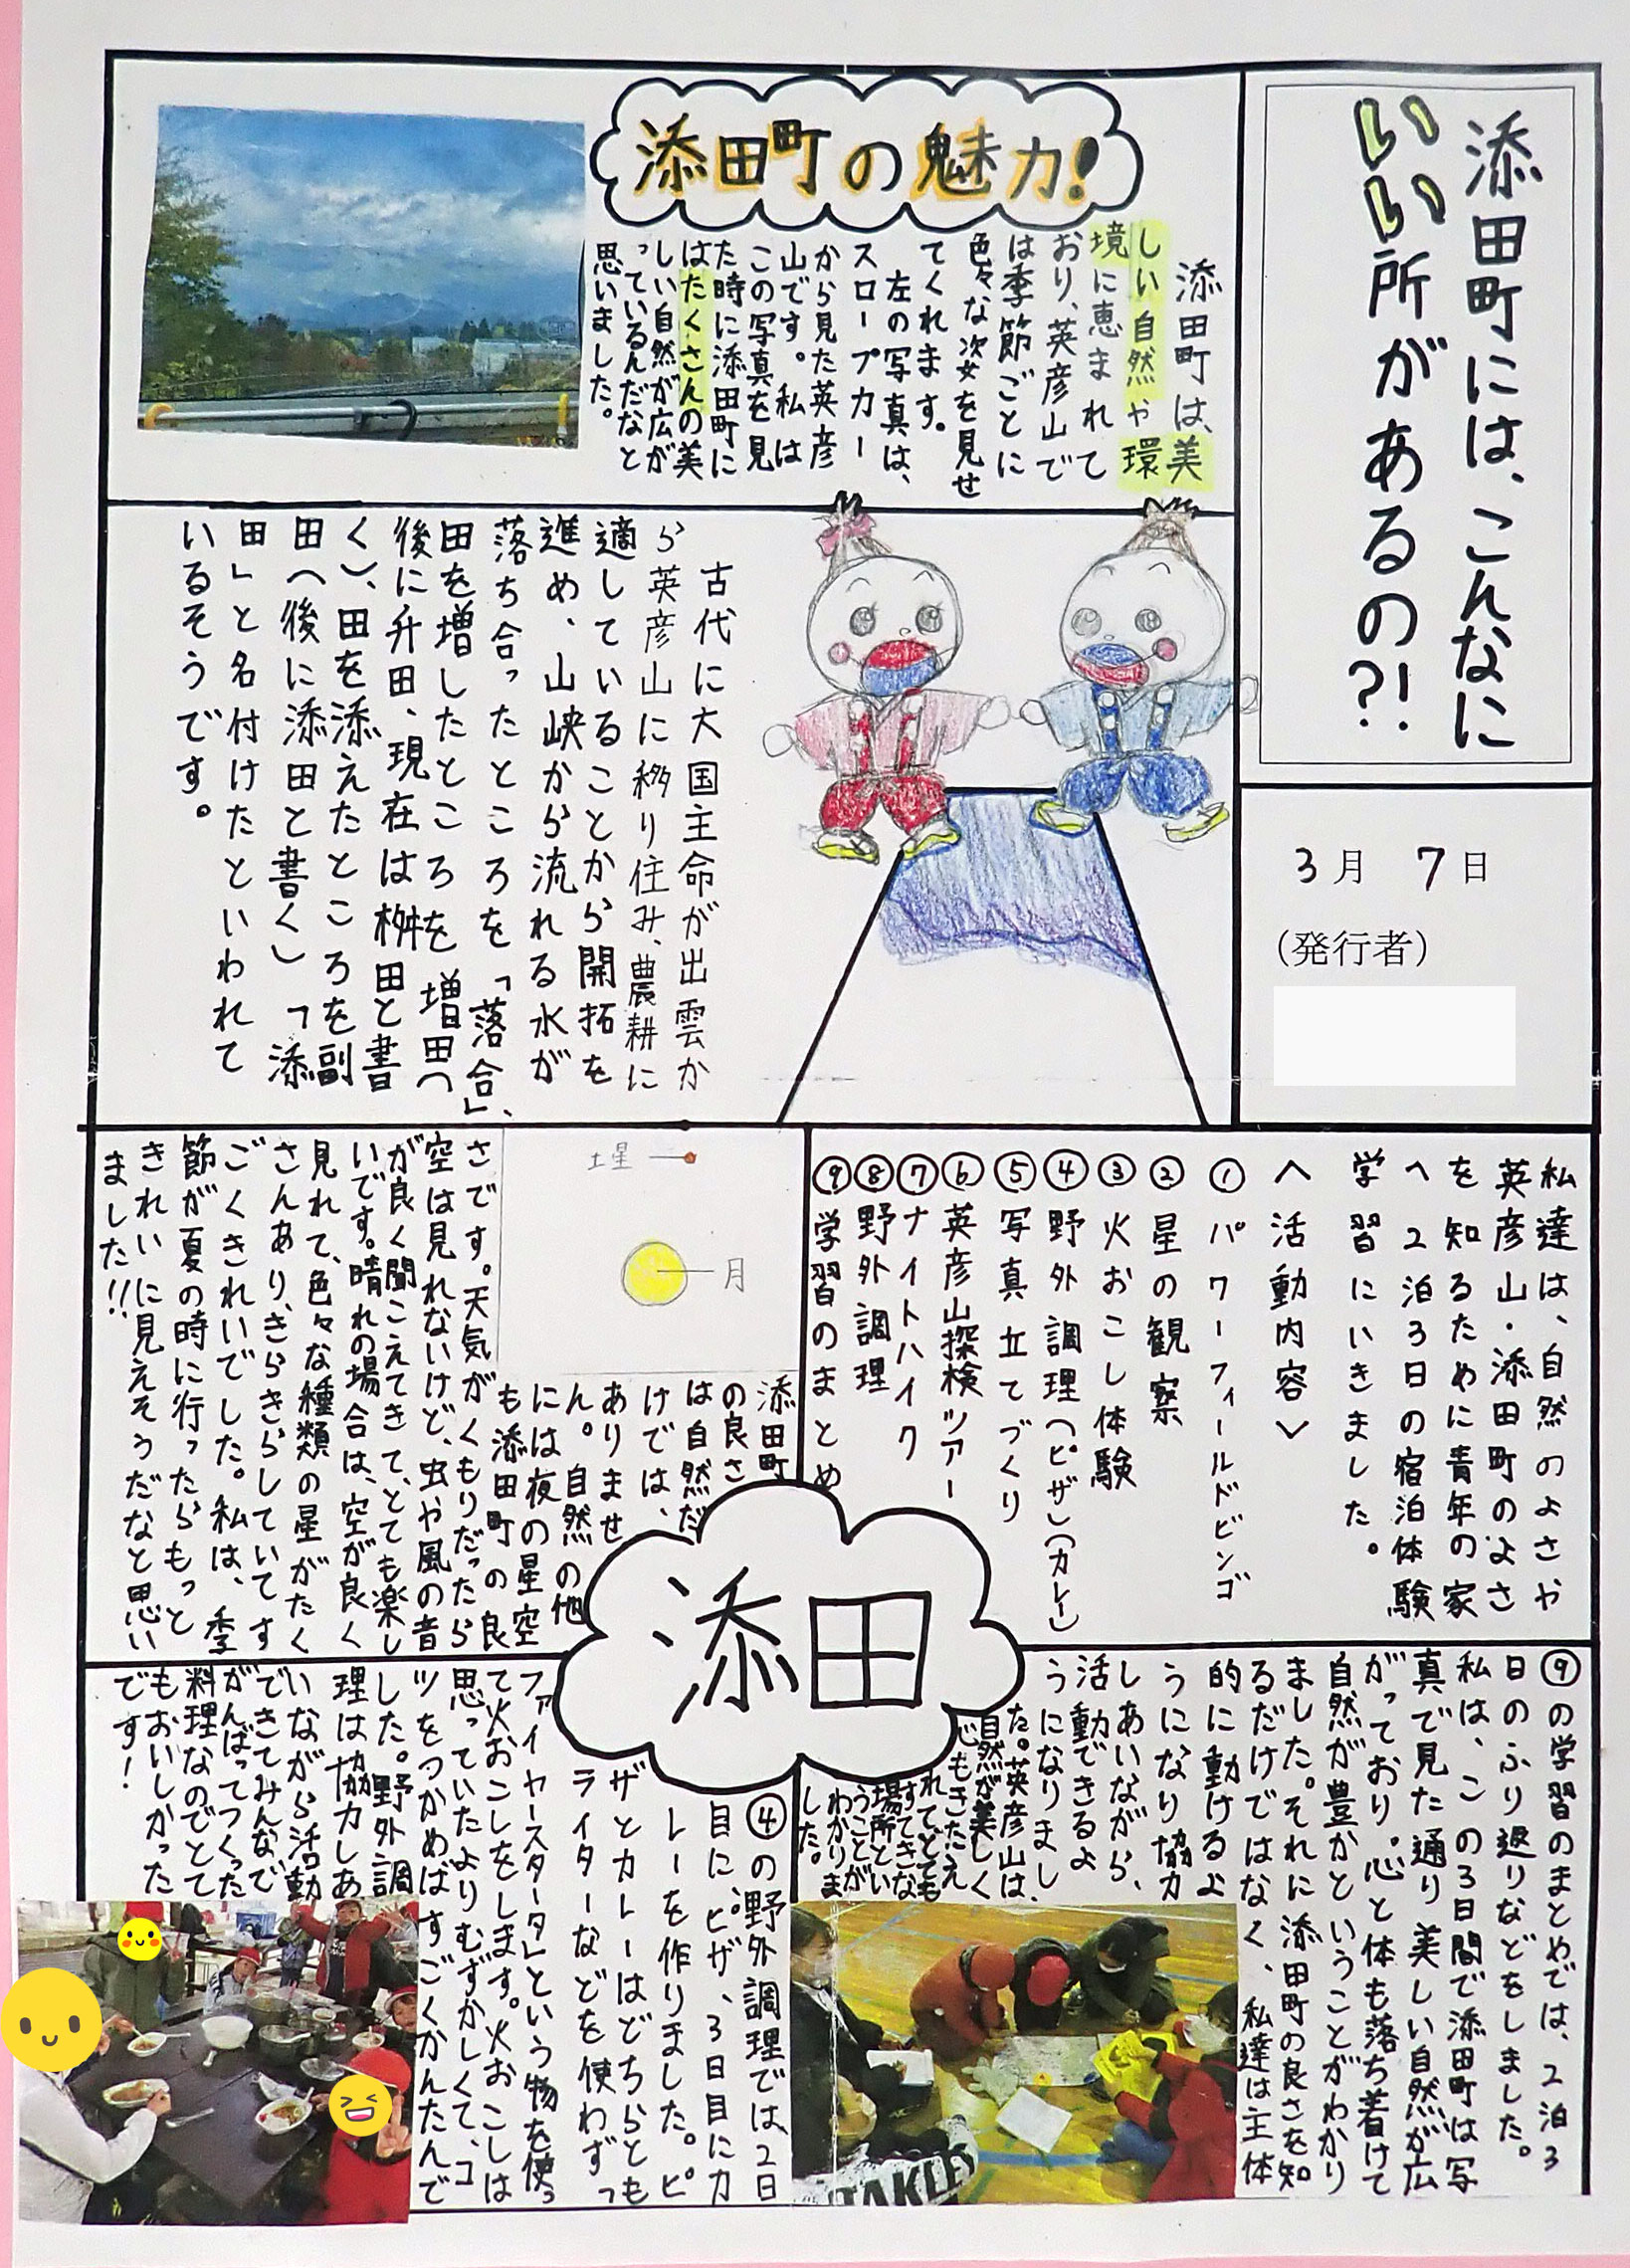 添田町には、こんなに
いい所があるの?!
3月 7日
(発行者)
添田町の魅力!
添田町は、美
しい自然や環
境に恵まれて
おり、英彦山で
は季節ごとに
色々な姿を見せ
てくれます。
左の写真は、
スロープカー
から見た英彦
山です。私は
この写真を見
た時に添田町に
はたくさんの美
しい自然が広が
っているんだなと
思いました。
古代に大国主命が出雲か
ら英彦山に移り住み、農耕に
適していることから開拓を
進め、山峡から流れる水が
落ち合ったところを「落合」、
田を増したところを増田(
後に升田、現在は桝田と書
く)、田を添えたところを副
田(後に添田と書く)「添
田」と名付けたといわれて
いるそうです。
私達は、自然のよさや
英彦山・添田町のよさ
を知るために青年の家
へ2泊3日の宿泊体験
学習にいきました。
<活動内容>
①パワーフィールドビンゴ
②星の観察
③火おこし体験
④野外調理(ピザ)(カレー)
⑤写真立てづくり
⑥英彦山探検ツアー
⑦ナイトハイク
⑧野外調理
⑨学習のまとめ
土星
月
添田町
の良さ
は自然だ
けでは、
ありませ
ん。自然の他
には夜の星空
も添田町の良
さです。天気がくもりだったら
空は見れないけど、虫や風の音
が良く聞こえてきて、とても楽し
いです。晴れの場合は、空が良く
見れて、色々な種類の星がたく
さんあり、きらきらしていてす
ごくきれいでした。私は、季
節が夏の時に行ったらもっと
きれいに見えそうだなと思い
ました!!
添田
⑨の学習のまとめでは、2泊3
日のふり返りなどをしました。
私は、この3日間で添田町は写
真で見た通り美しい自然が広
がっており、心と体も落ち着けて
自然が豊かということがわかり
ました。それに添田町の良さを知
るだけではなく、私達は主体
的に動けるよ
うになり協力
しあいながら、
活動できるよ
うになりまし
た。英彦山は、
自然が美しく
心もきたえ
れてとても
すてきな
場所とい
うことが
わかりま
した。
④の野外調理では、2日
目に、ピザ、3日目にカ
レーを作りました。ピ
ザとカレーはどちらとも
ライターなどを使わず「
ファイヤースターター」という物を使っ
て火おこしをします。火おこしは
思っていたよりむずかしくて、コ
ツをつかめばすごくかんたんで
した。野外調
理は協力しあ
いながら活動
できてみんなで
がんばってつくった
料理なのでとて
もおいしかった
です!